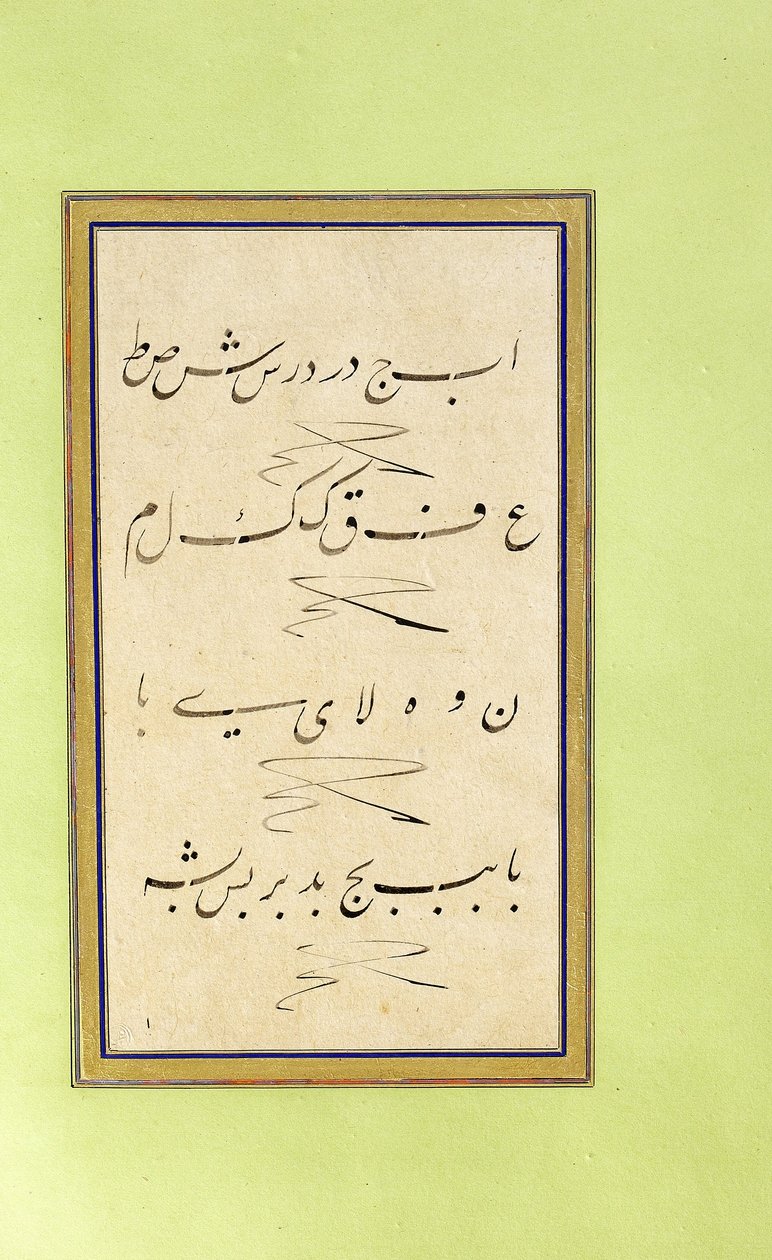 ا ب ب ج د ر د ر س ش ص ط
ع ف ف ق ک ک ل م
ن و ه لا ی سے با
با بب بب بج بد بر بس بشه